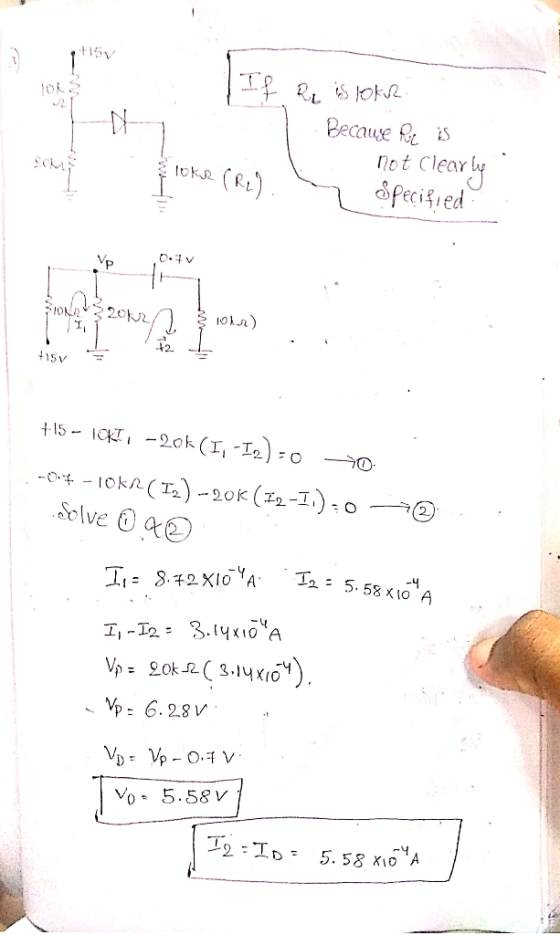 +15V
10k
Ω
20kΩ
10kΩ (RL)
If RL is 10kΩ
Because RL is
not clearly
Specified.
Vp 0.7V
10kΩ I1 20kΩ I2 10kΩ)
+15V
+15 - 10kI1 - 20k(I1 - I2) = 0 → ①
-0.7 - 10kΩ(I2) - 20k(I2 - I1) = 0 → ②
Solve ① & ②
I1 = 8.72×10⁻⁴A. I2 = 5.58×10⁻⁴A
I1 - I2 = 3.14×10⁻⁴A
Vp = 20kΩ(3.14×10⁻⁴).
Vp = 6.28V
VD = Vp - 0.7V.
VO = 5.58V
I2 = ID = 5.58×10⁻⁴A